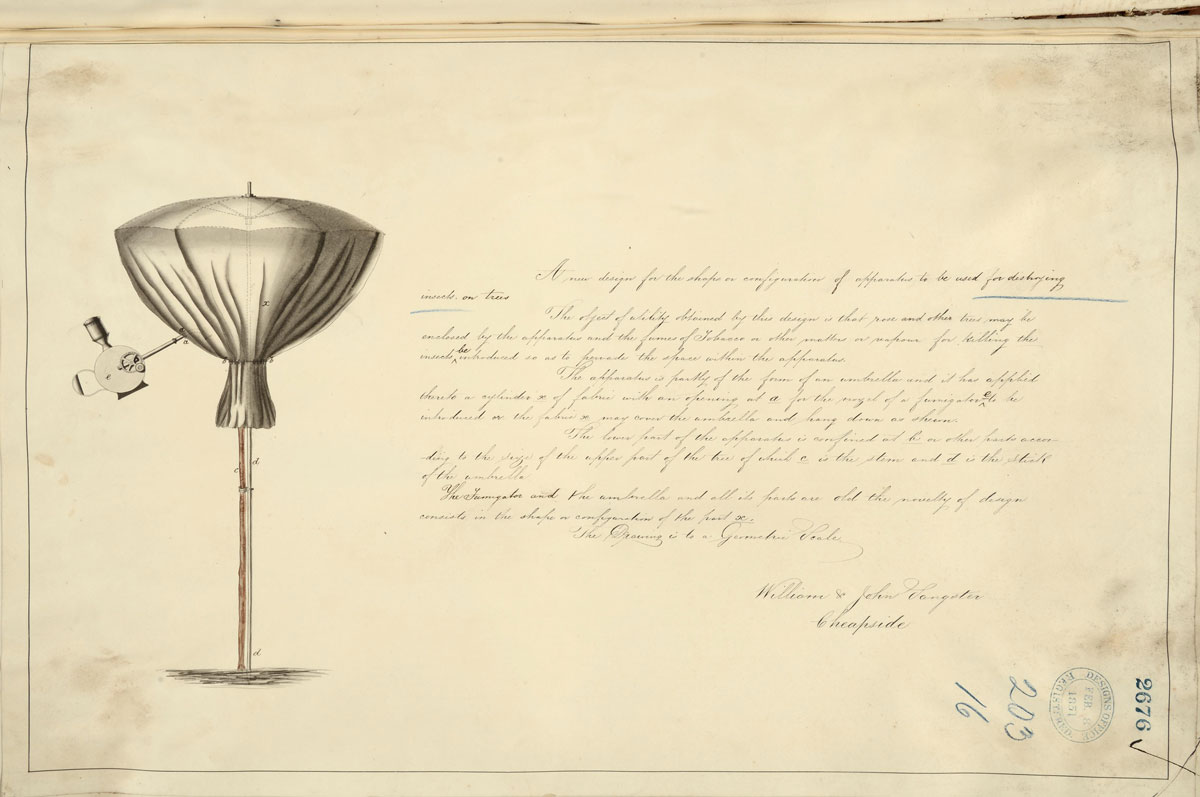 A new design for the shape or configuration of apparatus to be used for destroying
insects on trees
The object of utility obtained by this design is that rose and other trees may be
enclosed by the apparatus and the fumes of Tobacco or other matters or vapour for killing the
insects be introduced so as to pervade the space within the apparatus.
The apparatus is partly of the form of an umbrella and it has applied
thereto a cylinder x of fabric with an opening at a for the nozzel of a fumigator e to be
introduced or the fabric x may cover the umbrella and hang down as shewn.
The lower part of the apparatus is confined at b or other parts accor-
-ding to the size of the upper part of the tree of which c is the stem and d is the stick
of the umbrella
The Fumigator and the umbrella and all its parts are old the novelty of design
consists in the shape or configuration of the part x.
The Drawing is to a Geometric Scale.
William & John Sangster
Cheapside
x
a
e
b
b
c
d
d
16
203
DESIGNS OFFICE
FEB. 8
1851
REGISTERED
2676